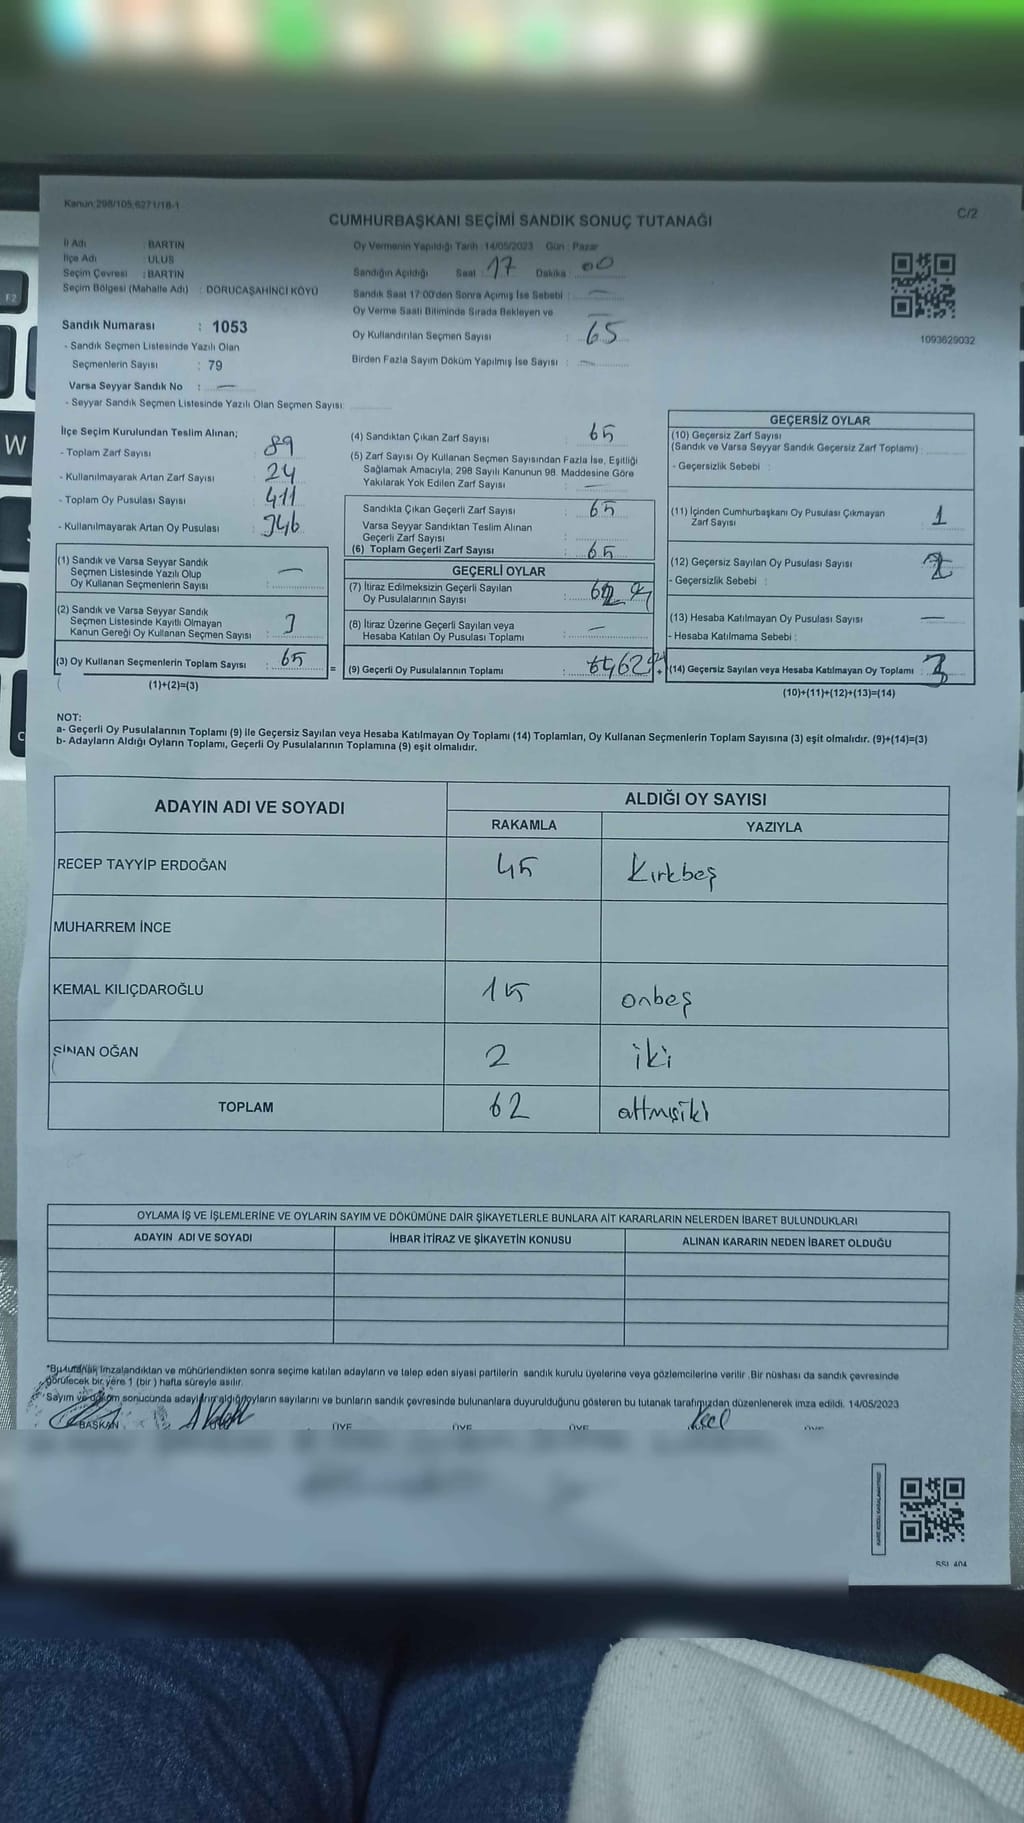 Kanun:298/105,6271/18-1
C/2
CUMHURBAŞKANI SEÇİMİ SANDIK SONUÇ TUTANAĞI
İl Adı : BARTIN
İlçe Adı : ULUS
Seçim Çevresi : BARTIN
Seçim Bölgesi (Mahalle Adı) : DORUCAŞAHİNCİ KÖYÜ
Sandık Numarası : 1053
- Sandık Seçmen Listesinde Yazılı Olan
Seçmenlerin Sayısı : 79
Varsa Seyyar Sandık No : —
- Seyyar Sandık Seçmen Listesinde Yazılı Olan Seçmen Sayısı:
Oy Vermenin Yapıldığı Tarih :14/05/2023 Gün : Pazar
Sandığın Açıldığı Saat : 17 Dakika : 00
Sandık Saat 17:00'den Sonra Açımış İse Sebebi : —
Oy Verme Saati Bitiminde Sırada Bekleyen ve —
Oy Kullandırılan Seçmen Sayısı : 65
Birden Fazla Sayım Döküm Yapılmış İse Sayısı : —
1093629032
İlçe Seçim Kurulundan Teslim Alınan;
- Toplam Zarf Sayısı : 89
- Kullanılmayarak Artan Zarf Sayısı : 24
- Toplam Oy Pusulası Sayısı : 411
- Kullanılmayarak Artan Oy Pusulası : 346
(1) Sandık ve Varsa Seyyar Sandık
Seçmen Listesinde Yazılı Olup
Oy Kullanan Seçmenlerin Sayısı : —
(2) Sandık ve Varsa Seyyar Sandık
Seçmen Listesinde Kayıtlı Olmayan
Kanun Gereği Oy Kullanan Seçmen Sayısı :
(3) Oy Kullanan Seçmenlerin Toplam Sayısı : 65
(1)+(2)=(3)
=
(4) Sandıktan Çıkan Zarf Sayısı : 65
(5) Zarf Sayısı Oy Kullanan Seçmen Sayısından Fazla İse, Eşitliği
Sağlamak Amacıyla, 298 Sayılı Kanunun 98. Maddesine Göre
Yakılarak Yok Edilen Zarf Sayısı : —
Sandıkta Çıkan Geçerli Zarf Sayısı : 65
Varsa Seyyar Sandıktan Teslim Alınan
Geçerli Zarf Sayısı :
(6) Toplam Geçerli Zarf Sayısı : 65
GEÇERLİ OYLAR
(7) İtiraz Edilmeksizin Geçerli Sayılan
Oy Pusulalarının Sayısı : 62
(8) İtiraz Üzerine Geçerli Sayılan veya
Hesaba Katılan Oy Pusulası Toplamı : —
(9) Geçerli Oy Pusulalarının Toplamı : 62
+
GEÇERSİZ OYLAR
(10) Geçersiz Zarf Sayısı
(Sandık ve Varsa Seyyar Sandık Geçersiz Zarf Toplamı) :
- Geçersizlik Sebebi :
(11) İçinden Cumhurbaşkanı Oy Pusulası Çıkmayan
Zarf Sayısı : 1
(12) Geçersiz Sayılan Oy Pusulası Sayısı : 2
- Geçersizlik Sebebi :
(13) Hesaba Katılmayan Oy Pusulası Sayısı : —
- Hesaba Katılmama Sebebi :
(14) Geçersiz Sayılan veya Hesaba Katılmayan Oy Toplamı : 3
(10)+(11)+(12)+(13)=(14)
NOT:
a- Geçerli Oy Pusulalarının Toplamı (9) ile Geçersiz Sayılan veya Hesaba Katılmayan Oy Toplamı (14) Toplamları, Oy Kullanan Seçmenlerin Toplam Sayısına (3) eşit olmalıdır. (9)+(14)=(3)
b- Adayların Aldığı Oyların Toplamı, Geçerli Oy Pusulalarının Toplamına (9) eşit olmalıdır.
ADAYIN ADI VE SOYADI
ALDIĞI OY SAYISI
RAKAMLA YAZIYLA
RECEP TAYYİP ERDOĞAN 45 Kırkbeş
MUHARREM İNCE
KEMAL KILIÇDAROĞLU 15 onbeş
SİNAN OĞAN 2 iki
TOPLAM 62 altmışiki
OYLAMA İŞ VE İŞLEMLERİNE VE OYLARIN SAYIM VE DÖKÜMÜNE DAİR ŞİKAYETLERLE BUNLARA AİT KARARLARIN NELERDEN İBARET BULUNDUKLARI
ADAYIN ADI VE SOYADI İHBAR İTİRAZ VE ŞİKAYETİN KONUSU ALINAN KARARIN NEDEN İBARET OLDUĞU
*Bu tutanak imzalandıktan ve mühürlendikten sonra seçime katılan adayların ve talep eden siyasi partilerin sandık kurulu üyelerine veya gözlemcilerine verilir .Bir nüshası da sandık çevresinde
görülecek bir yere 1 (bir ) hafta süreyle asılır.
Sayım ve döküm sonucunda adayların aldığı oyların sayılarını ve bunların sandık çevresinde bulunanlara duyurulduğunu gösteren bu tutanak tarafımızdan düzenlenerek imza edildi. 14/05/2023
BAŞKAN ÜYE ÜYE ÜYE
F2
W
C